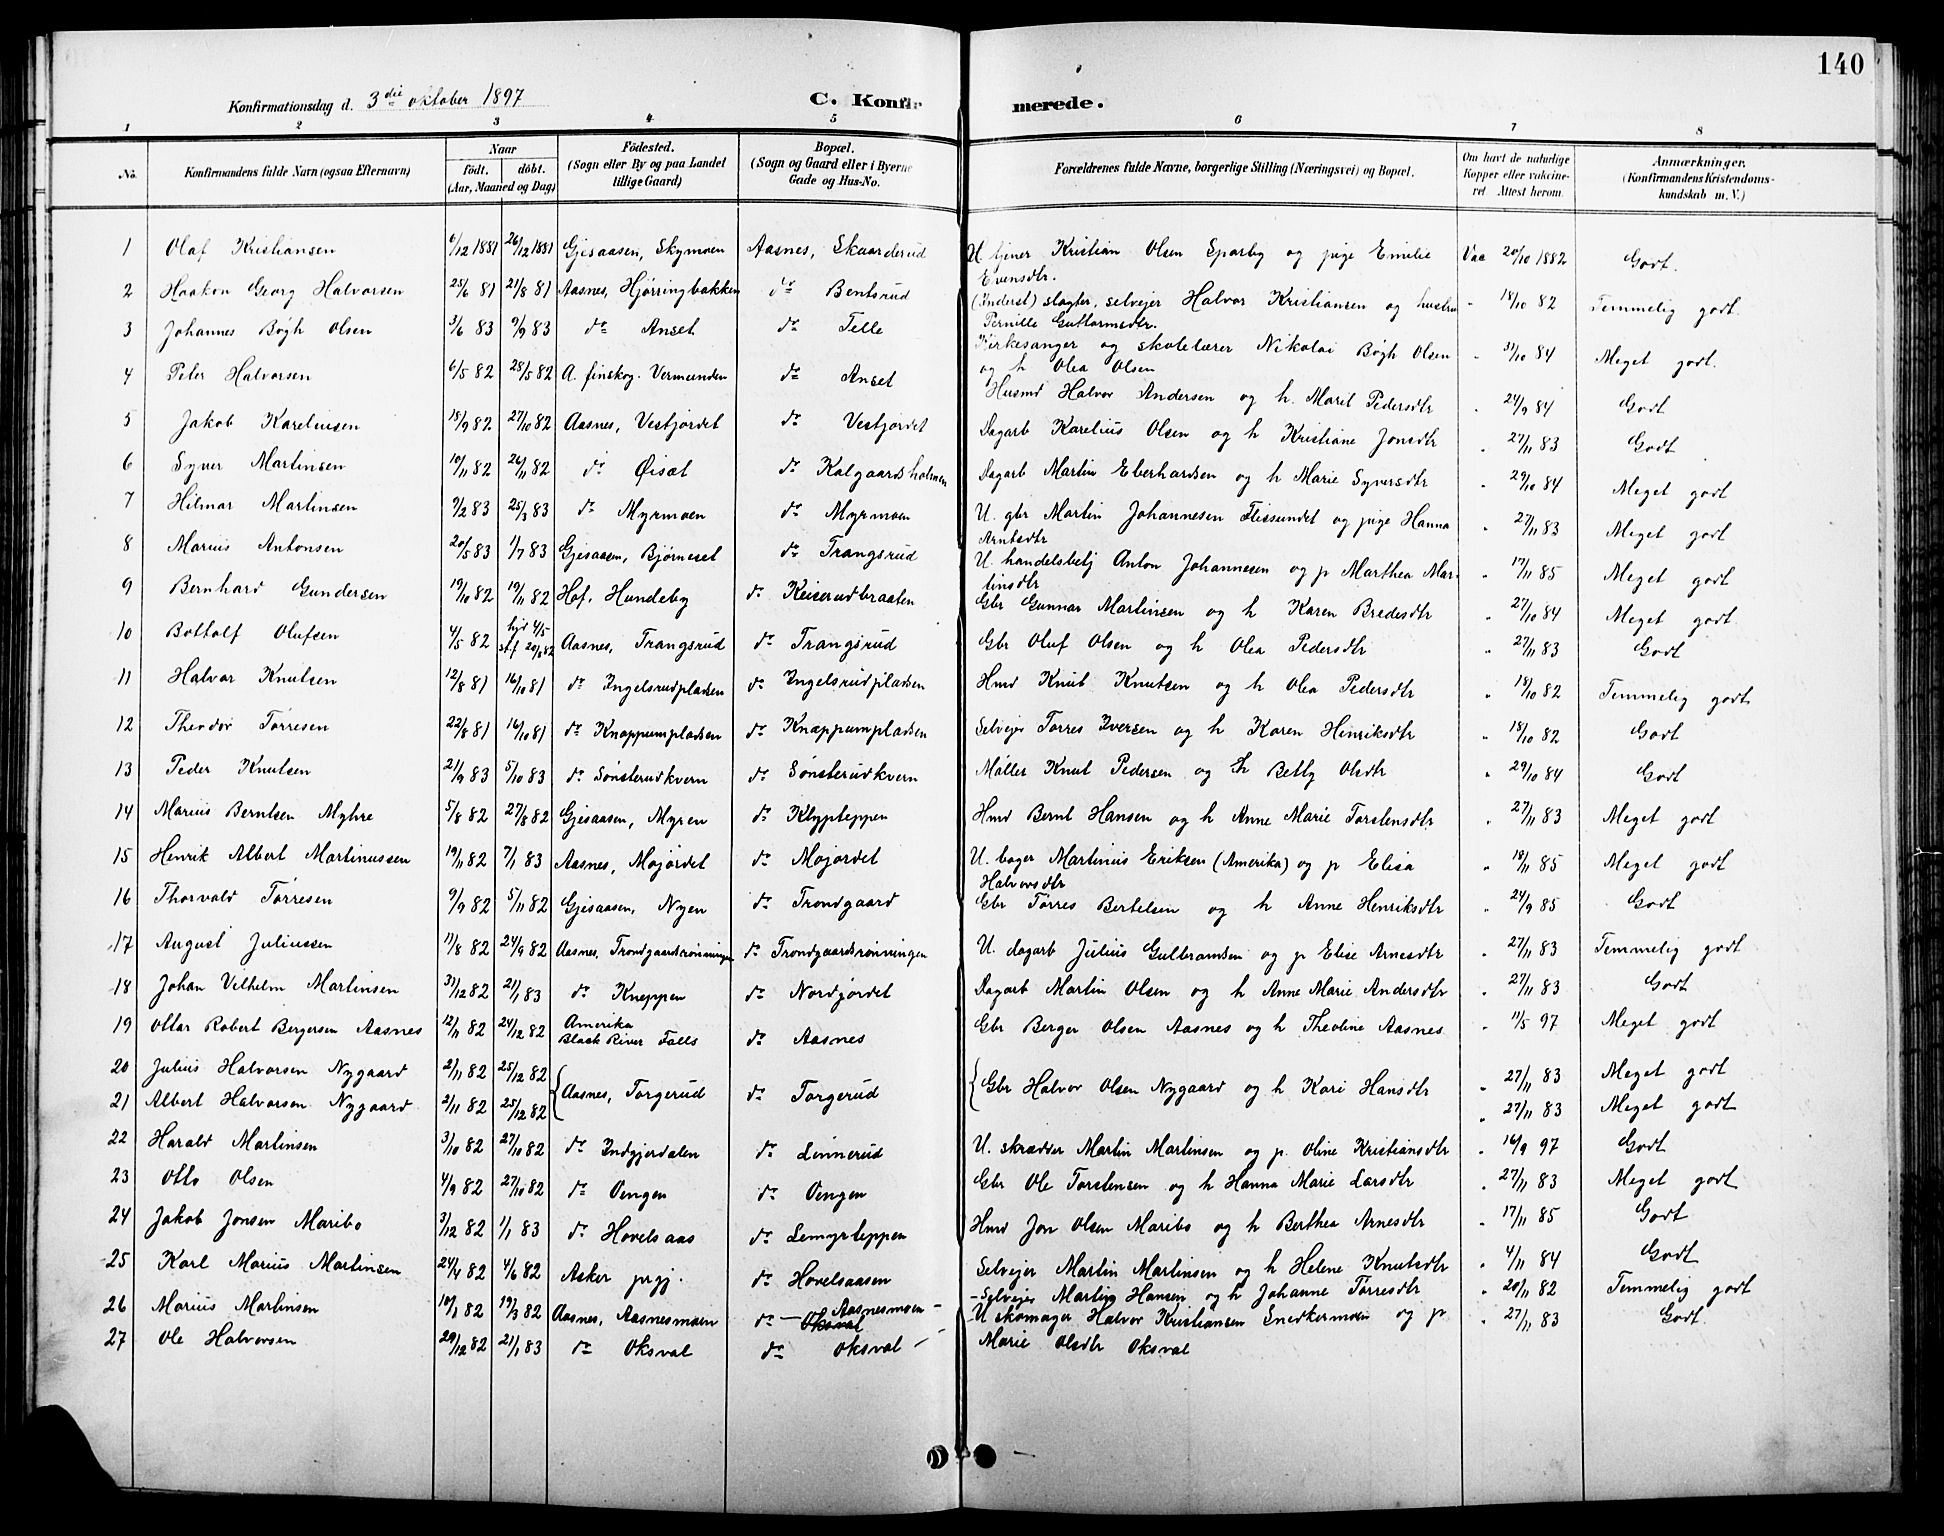 140
Konfirmationsdag d. 3die oktober 1897
C. Konfir merede.
1 2 3 4 5 6 7 8
No. Konfirmandens fulde Navn (ogsaa Efternavn) Naar født. døbt. (Aar, Maaned og Dag) Födested. (Sogn eller By og paa Landet lillige Gaard) Bopæl. (Sogn og Gaard eller i Byerne Gade og Hus-No. Forældrenes fulde Navne, borgerlige Stilling (Næringsvei) og Bopæl. Om havt de naturlige Kopper eller vakcineret Attest herom. Anmærkninger. (Konfirmandens Kristendomskundskab m. V.)
1 Olaf Kristiansen 6/12 1881 26/12 1881 Gjesaasen, Skymoen Aasnes, Skaarderud U. tjener Kristian Olsen Sparby og pige Emilie Evensdtr. Vaa 20/10 1882 Godt.
2 Haakon Georg Halvorsen 25/6 81 21/8 81 Aasnes, Hjørringbakken do Bentsrud (Inderst) slagter, selvejer Halvor Kristiansen og hustru Pernille Guttormsdtr. " 18/10 82 Temmelig godt.
3 Johannes Bøgh Olsen 3/6 83 9/9 83 do Anset do Telle Kirkesanger og skolelærer Nikolai Bøgh Olsen og h Olea Olsen " 31/10 84 Meget godt.
4 Peter Halvorsen 6/5 82 28/5 82 A. finskog. Vermunden do Anset Husmd Halvor Andersen og h. Marit Pedersdtr " 24/9 84 Godt
5 Jakob Kareliusen 18/9 82 27/10 82 Aasnes, Vestjordet do Vestjordet Dagarb Karelius Olsen og h Kristiane Jonsdtr " 27/11 83 Godt
6 Syver Martinsen 10/11 82 26/11 82 do Øisæt do Kalgaardsholmen Dagarb Martin Eberhardsen og h Marie Syversdtr " 29/10 84 Meget godt
7 Hilmar Martinsen 9/2 83 25/3 83 do Myrmoen do Myrmoen U. gbr Martin Johannesen Flissundet og pige Hanna Arntsdtr " 27/11 83 Meget godt
8 Marius Antonsen 20/5 83 1/7 83 Gjesaasen, Bjørneset do Trangsrud U. handelsbetj Anton Johannesen og p Marthea Martinsdtr " 17/11 85 Meget godt
9 Bernhard Gundersen 19/10 82 19/11 82 Hof, Hundeby do Keiserudbraaten Gbr Gunnar Martinsen og h Karen Bredesdtr " 27/10 84 Meget godt
10 Bottolf Olufsen 4/5 82 hjd 4/5 stf 20/8 82 Aasnes, Trangsrud do Trangsrud Gbr Oluf Olsen og h Olea Pedersdtr " 27/11 83 Godt
11 Halvor Knutsen 12/8 81 16/10 81 do Ingelsrudpladsen do Ingelsrudpladsen Hmd Knut Knutsen og h Olea Pedersdtr " 18/10 82 Temmelig godt
12 Theodor Tørresen 22/8 81 16/10 81 do Knappumpladsen do Knæppumpladsen Selvejer Tørres Iversen og h Karen Henriksdtr " 18/10 82 Godt
13 Peder Knutsen 21/9 83 5/10 83 do Sønsterudkvern do Sønsterudkvern Møller Knut Pedersen og h Betty Olsdtr " 29/10 84 Godt
14 Marius Berntsen Myhre 5/8 82 27/8 82 Gjesaasen, Myren do Klypteppen Hmd Bernt Hansen og h Anne Marie Torstensdtr " 27/11 83 Meget godt
15 Henrik Albert Martinussen 19/11 82 7/1 83 Aasnes, Mojordet do Mojordet U. bager Martinius Eriksen (Amerika) og p Elisa Halvorsdtr " 18/11 85 Meget godt
16 Thorvald Tørresen 9/9 82 5/11 82 Gjesaasen, Nyen do Trondgaard Gbr Tørres Bertelsen og h Anne Henriksdtr " 24/9 85 Godt
17 August Juliussen 11/8 82 24/9 82 Aasnes, Trondgaardsrønningen do Trondgaardsrønningen U. dagarb Julius Gulbrandsen og p Elise Arnesdtr " 27/11 83 Temmelig godt
18 Johan Vilhelm Martinsen 31/12 82 21/1 83 do Kneppen do Nordjordet Dagarb Martin Olsen og h Anne Marie Andersdtr " 27/11 83 Godt
19 Ottar Robert Bergersen Aasnes 12/11 82 24/12 82 Amerika Black River Falls do Aasnes Gbr Berger Olsen Aasnes og h Theoline Aasnes " 11/5 97 Meget godt
20 Julius Halvorsen Nygaard 2/11 82 25/12 82 Aasnes, Torgerud do Torgerud Gbr Halvor Olsen Nygaard og h Kari Hansdtr " 27/11 83 Meget godt
21 Albert Halvorsen Nygaard 2/11 82 25/12 82 " 27/11 83 Meget godt
22 Harald Martinsen 3/10 82 27/10 82 do Indgjerdalen do Linnerud U. skrædder Martin Martinsen og p. Oline Kristiansdtr " 16/9 97 Godt
23 Otto Olsen 4/9 82 27/10 82 do Vengen do Vengen Gbr Ole Torstensen og h Hanna Marie Larsdtr " 27/11 83 Meget godt
24 Jakob Jonsen Maribo 3/12 82 1/1 83 do Hovelsaas do Lemyrteppen Hmd Jon Olsen Maribo og h Berthea Arnesdtr " 17/11 85 Godt
25 Karl Marius Martinsen 24/4 82 4/6 82 Asker prgj. do Hovelsaasen Selvejer Martin Martinsen og h Helene Knutsdtr " 4/11 84 Godt
26 Marius Martinsen 10/1 82 19/3 82 Aasnes, Aasnesmoen do - Oksval Aasnesmoen - - Selvejer Martin Hansen og h Johanne Tørresdtr " 20/11 82 Temmelig godt
27 Ole Halvorsen 29/12 82 21/1 83 do Oksval do Oksval - - U skomager Halvor Kristiansen Snedkermoen og p Marie Olsdtr Oksval " 27/11 83 Godt.